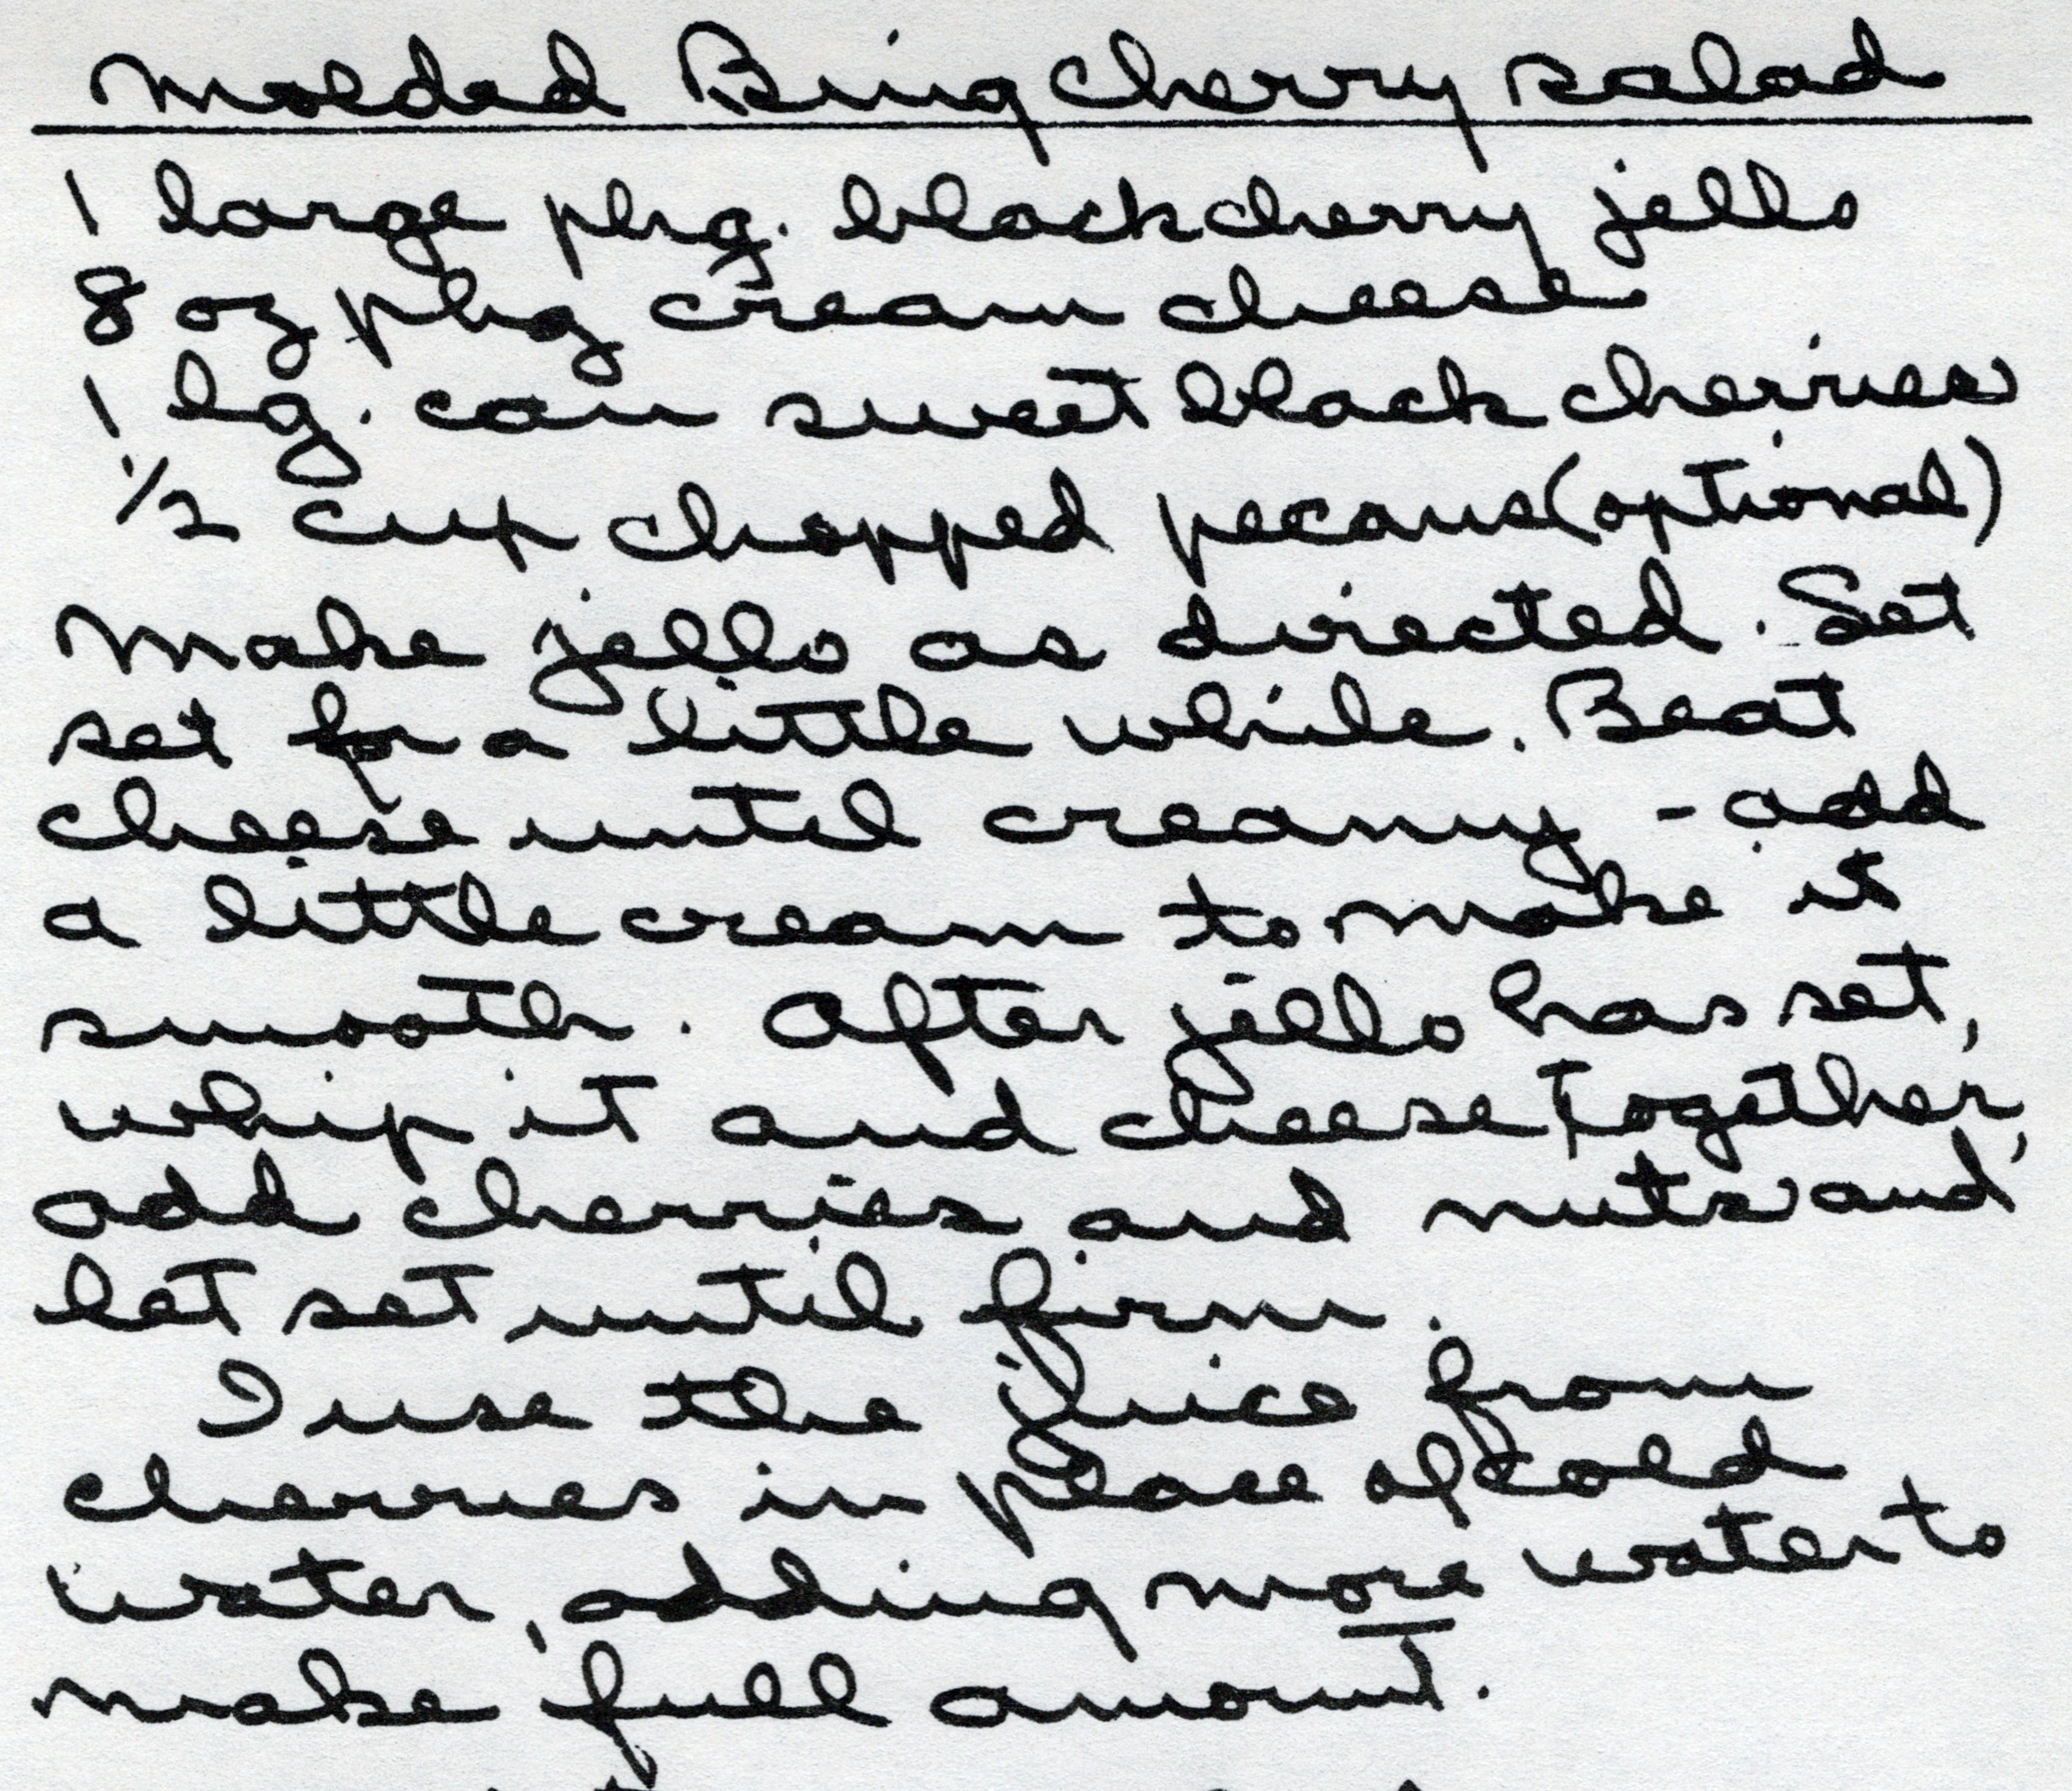 Molded Bing Cherry Salad
1 large pkg. black cherry jello
8 oz pkg cream cheese
1 lg. can sweet black cherries
1/2 cup chopped pecans (optional)
Make jello as directed. Set
set for a little while. Beat
cheese until creamy - add
a little cream to make it
smooth. After jello has set,
whip it and cheese together,
add cherries and nuts and
let set until firm.
I use the juice from
cherries in place of cold
water, adding more water to
make full amount.